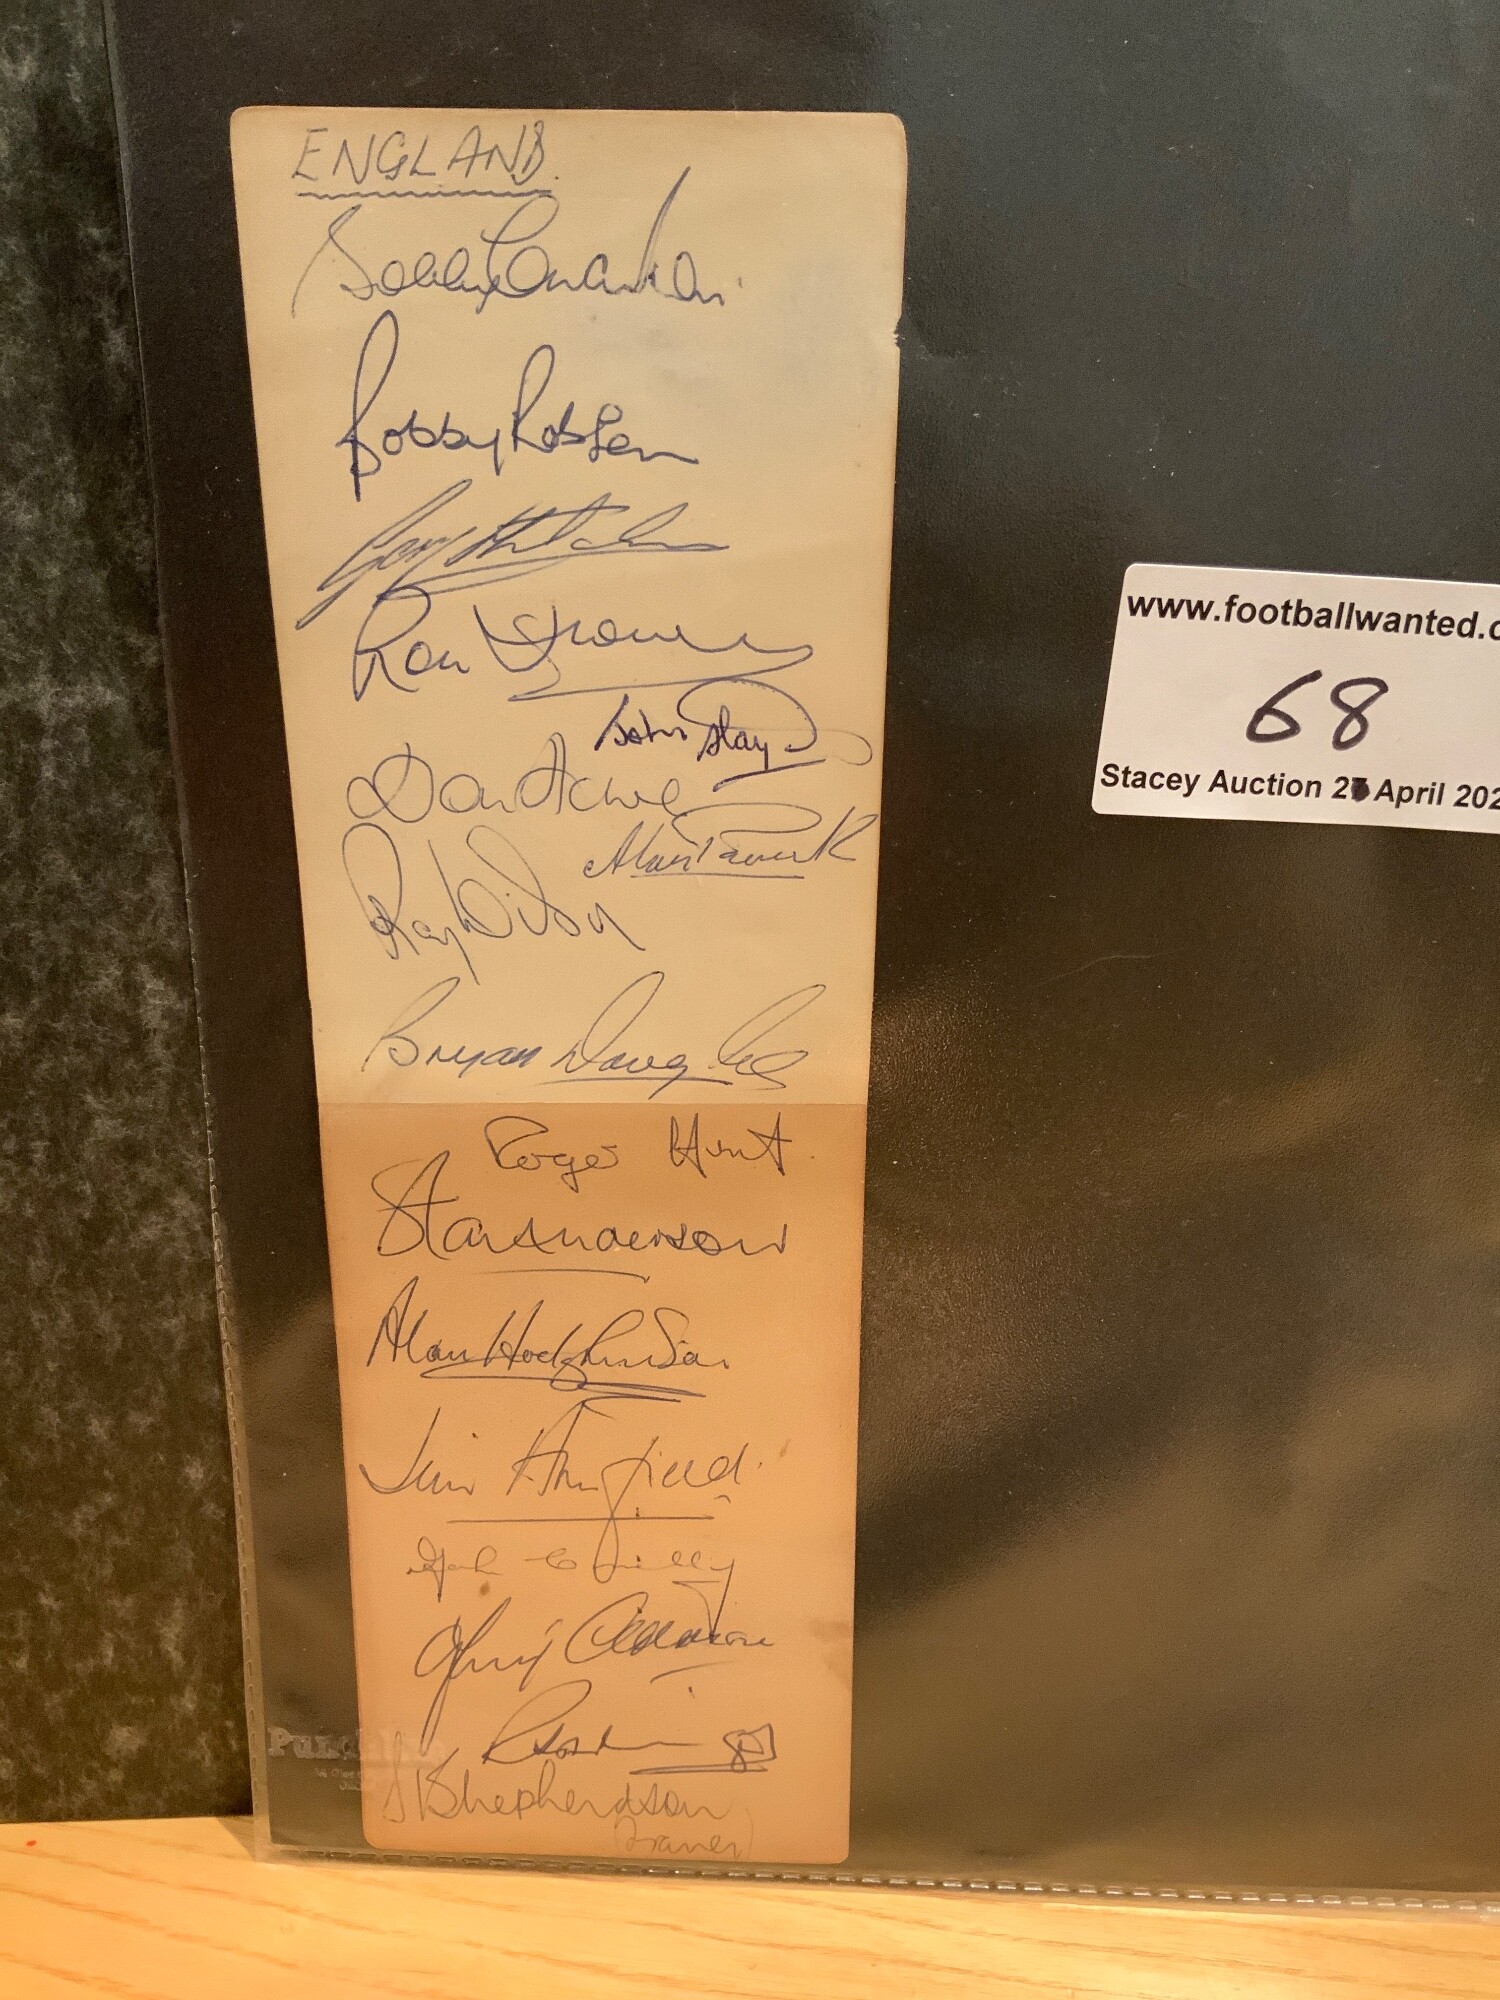 ENGLAND.
Bobby Charlton
Bobby Robson
Gerry Hitchens
Ron Flowers
Don Howe
Alan Peacock
Ray Wilson
Bryan Douglas
Roger Hunt
Stan Anderson
Alan Hodgkinson
Jim Armfield.
Shepherdson
www.footballwanted.c
68
Stacey Auction 2 April 202